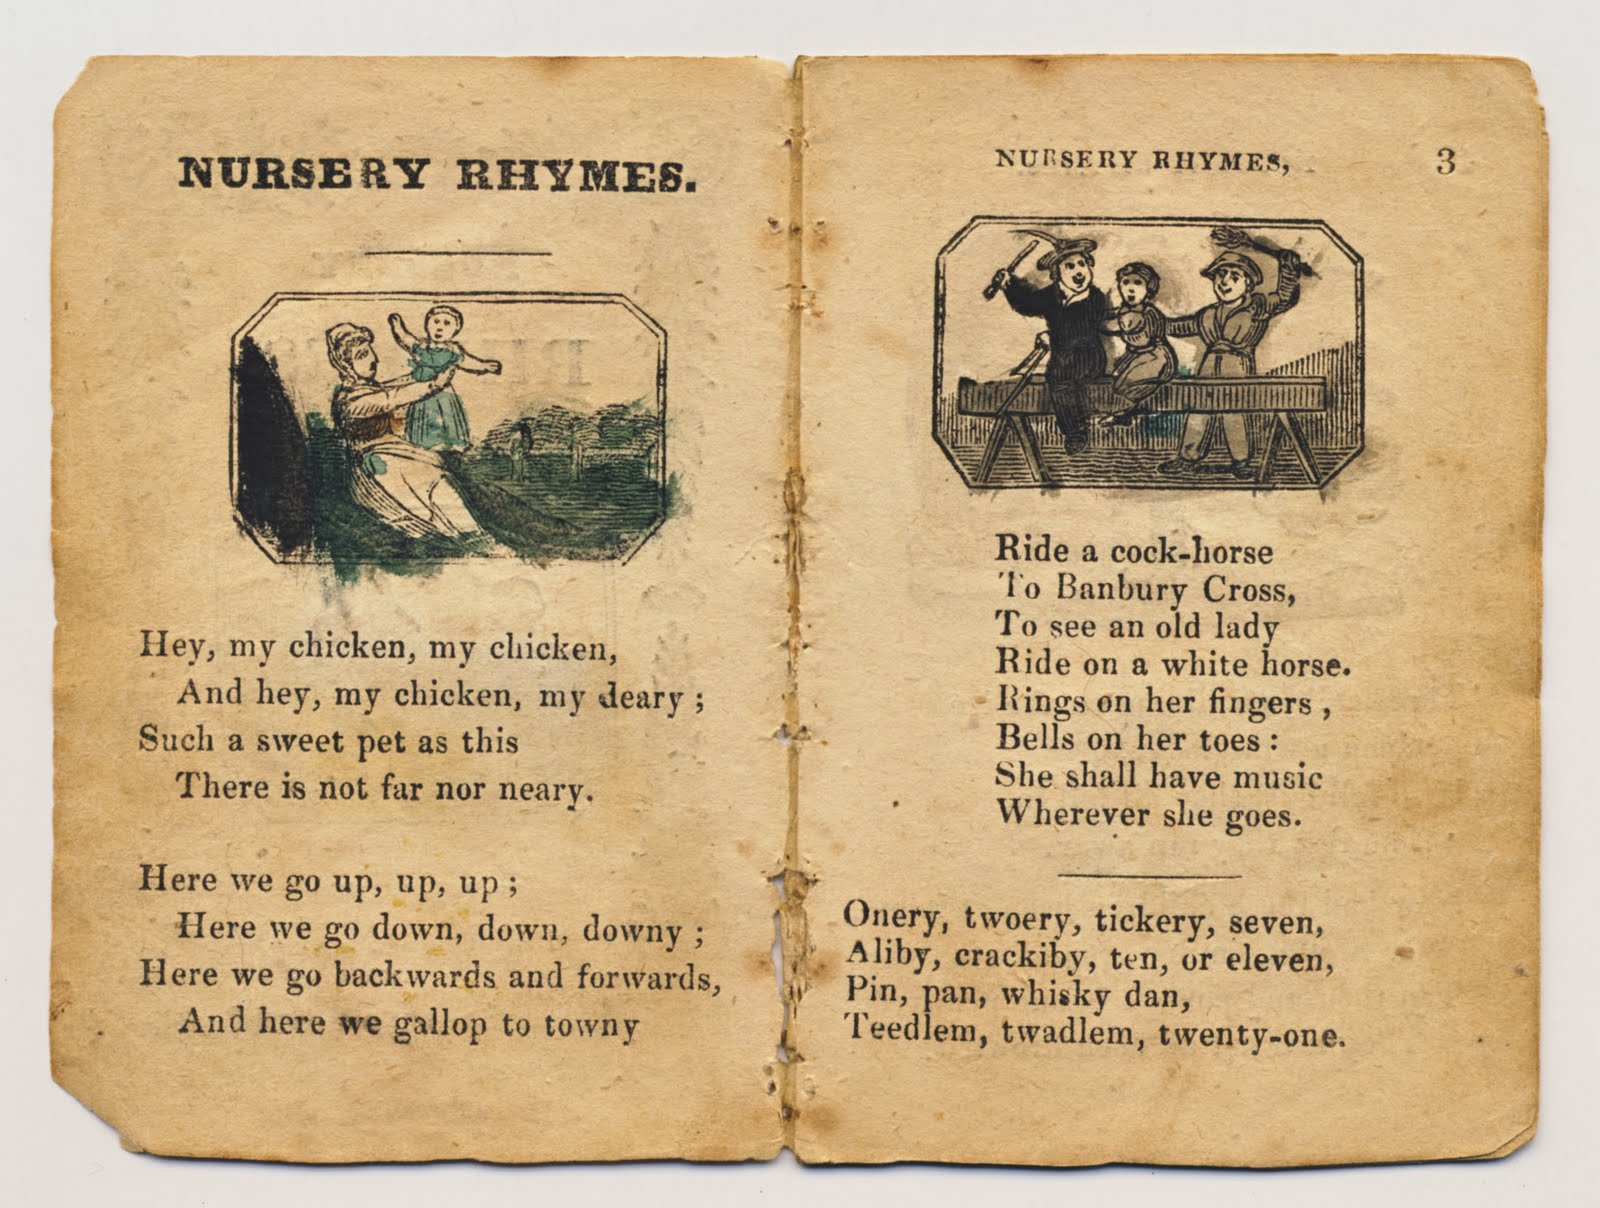 NURSERY RHYMES.
Hey, my chicken, my chicken,
And hey, my chicken, my deary ;
Such a sweet pet as this
There is not far nor neary.
Here we go up, up, up ;
Here we go down, down, downy ;
Here we go backwards and forwards,
And here we gallop to towny
NURSERY RHYMES,
3
Ride a cock-horse
To Banbury Cross,
To see an old lady
Ride on a white horse.
Rings on her fingers ,
Bells on her toes :
She shall have music
Wherever she goes.
Onery, twoery, tickery, seven,
Aliby, crackiby, ten, or eleven,
Pin, pan, whisky dan,
Teedlem, twadlem, twenty-one.